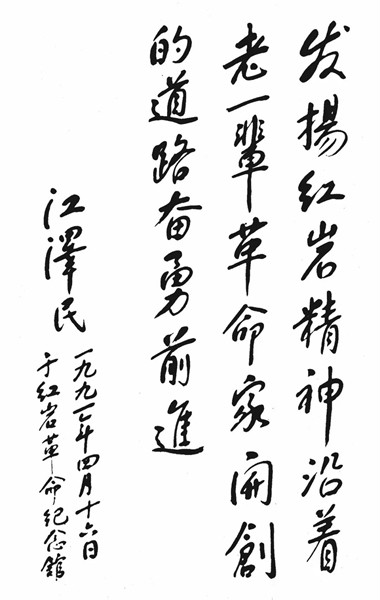 发揚红岩精神沿着
老一輩革命家開創
的道路奋勇前進
江澤民
一九九一年四月十六日
于红岩革命纪念館